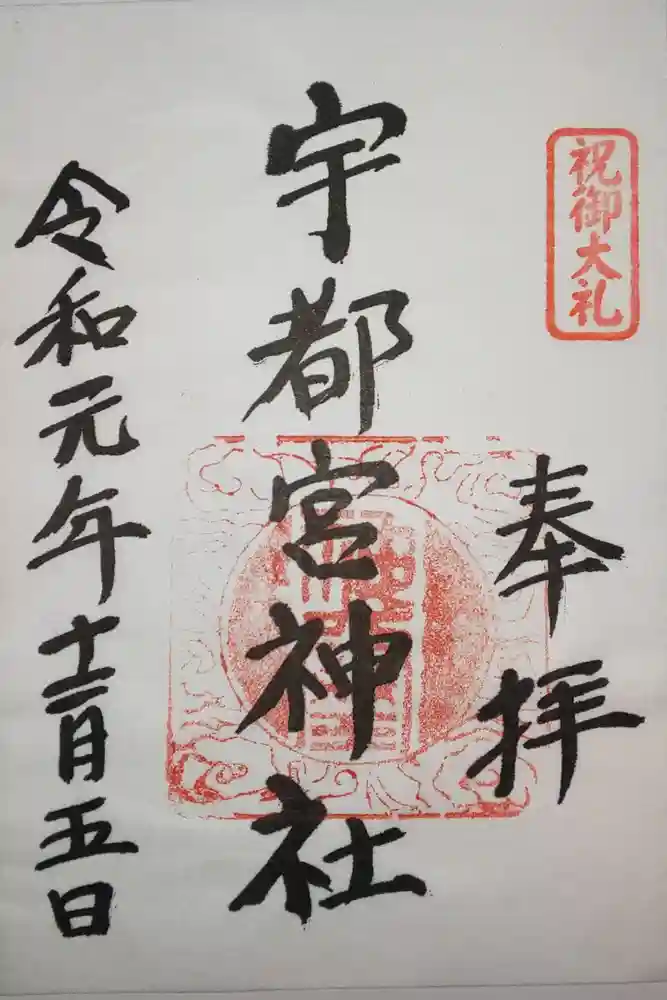 祝御大礼
奉拝
宇都宮神社
令和元年十二月五日